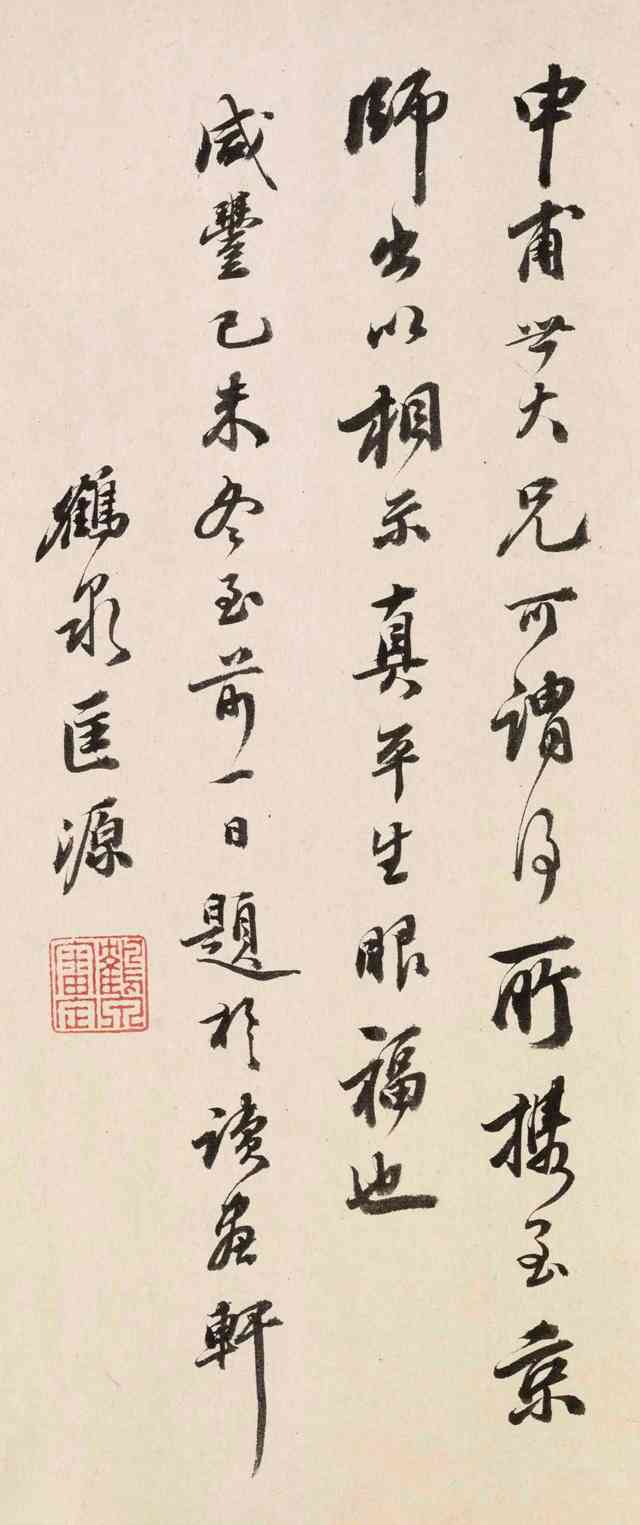 申甫世大兄可謂得所携至京
師出以相示真平生眼福也
咸豐己未冬至前一日題於讀畫軒
鶴泉匡源
鶴泉審定